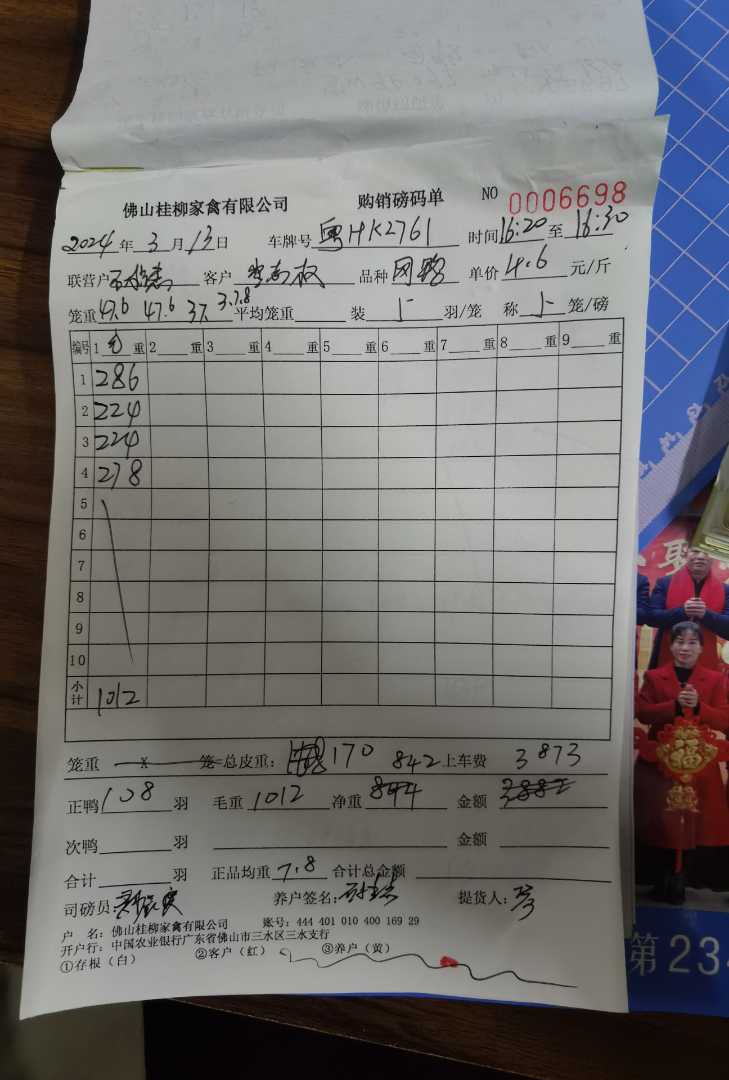 佛山桂柳家禽有限公司 购销磅码单 NO 0006698
2024年3月13日 车牌号 粤HK2761 时间 16:20 至 16:30
联营户 客户 品种 单价 4.6 元/斤
笼重 47.6 47.6 37. 37.8 平均笼重 装 5 羽/笼 称 5 笼/磅
编号 1 毛 重 2 重 3 重 4 重 5 重 6 重 7 重 8 重 9 重
1 286
2 224
3 224
4 278
5
6
7
8
9
10
小计 1012
笼重 x 笼= 总皮重: 170 842 上车费 3873
正鸭 108 羽 毛重 1012 净重 844 金额 3882
次鸭 羽 金额
合计 羽 正品均重 7.8 合计总金额
司磅员: 养户签名: 提货人:
户 名: 佛山桂柳家禽有限公司 账号: 444 401 010 400 169 29
开户行: 中国农业银行广东省佛山市三水区三水支行
①存根(白) ②客户(红) ③养户(黄)
第 234